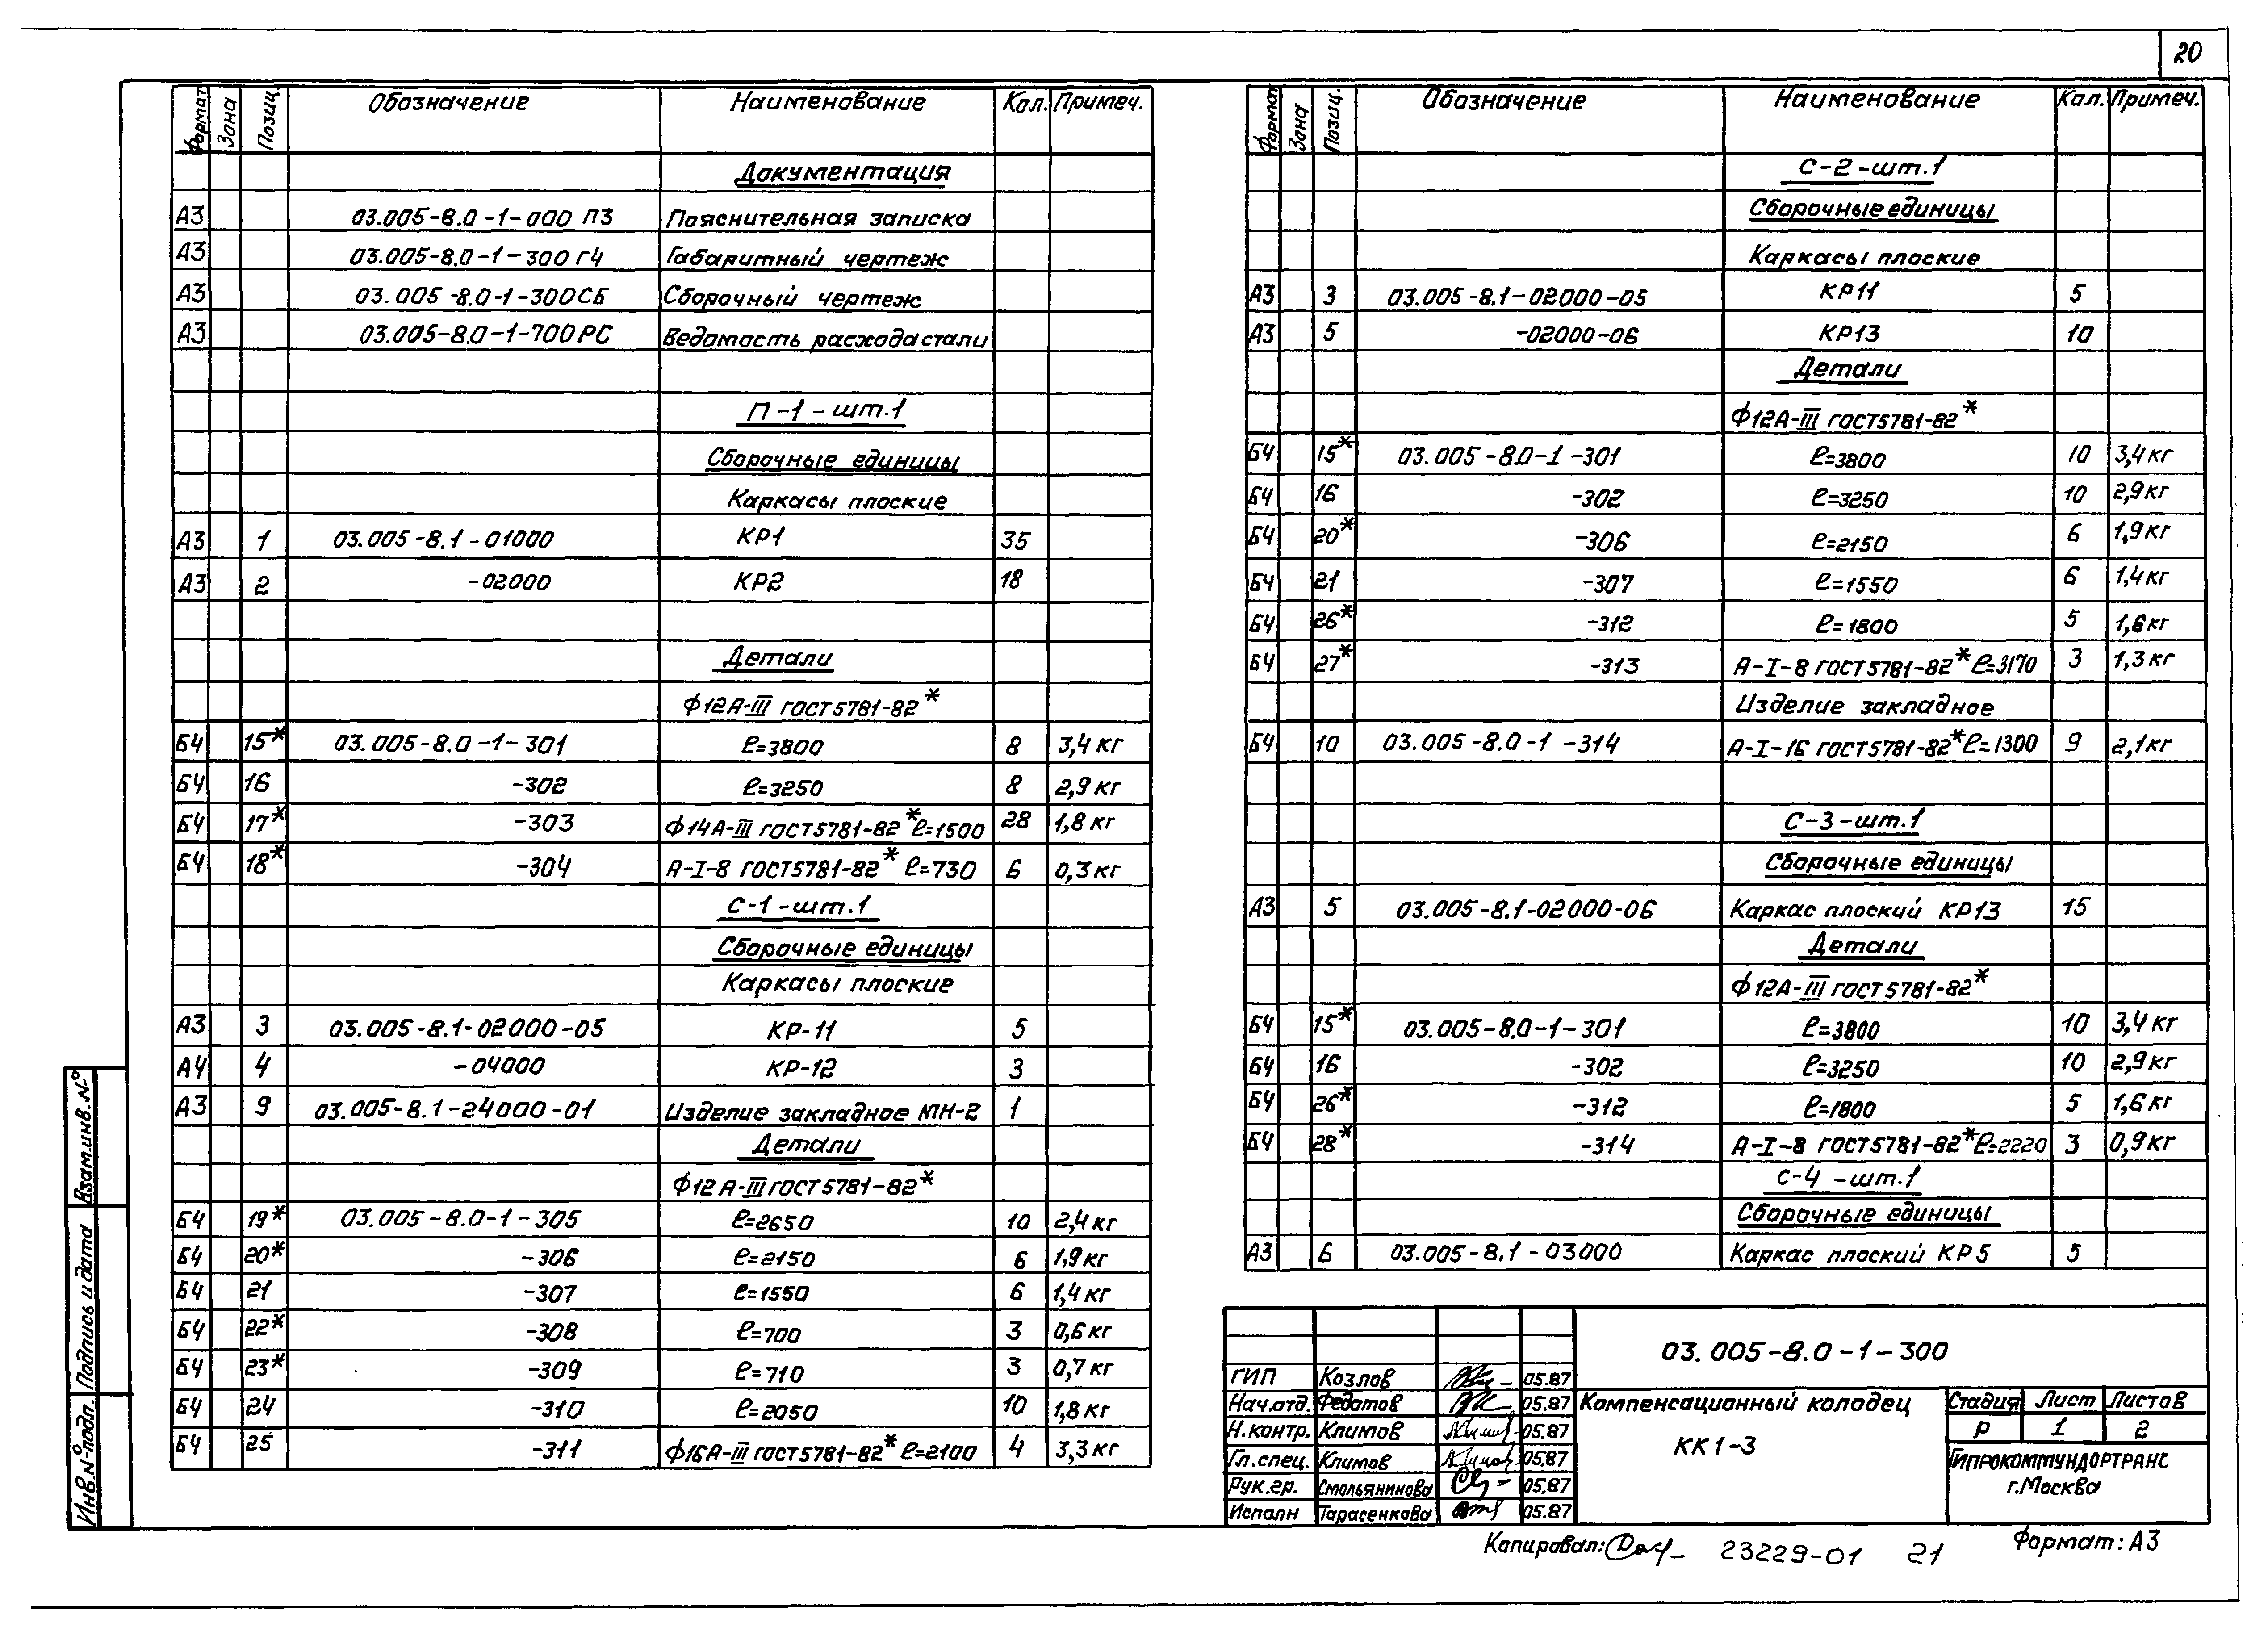 20
Формат Зона Позиц. Обозначение Наименование Кол. Примеч.
Документация
А3 03.005-8.0-1-000 ПЗ Пояснительная записка
А3 03.005-8.0-1-300 ГЧ Габаритный чертеж
А3 03.005-8.0-1-300СБ Сборочный чертеж
А3 03.005-8.0-1-700РС Ведомость расхода стали
П-1-шт.1
Сборочные единицы
Каркасы плоские
А3 1 03.005-8.1-01000 КР1 35
А3 2 -02000 КР2 18
Детали
ф12А-III ГОСТ5781-82*
БЧ 15* 03.005-8.0-1-301 ℓ=3800 8 3,4кг
БЧ 16 -302 ℓ=3250 8 2,9кг
БЧ 17* -303 ф14А-III ГОСТ5781-82* ℓ=1500 28 1,8кг
БЧ 18* -304 А-I-8 ГОСТ5781-82* ℓ=730 6 0,3кг
С-1-шт.1
Сборочные единицы
Каркасы плоские
А3 3 03.005-8.1-02000-05 КР-11 5
А4 4 -04000 КР-12 3
А3 9 03.005-8.1-24000-01 Изделие закладное МН-2 1
Детали
ф12А-III ГОСТ5781-82*
БЧ 19* 03.005-8.0-1-305 ℓ=2650 10 2,4кг
БЧ 20* -306 ℓ=2150 6 1,9кг
БЧ 21 -307 ℓ=1550 6 1,4кг
БЧ 22* -308 ℓ=700 3 0,6кг
БЧ 23* -309 ℓ=710 3 0,7кг
БЧ 24 -310 ℓ=2050 10 1,8кг
БЧ 25 -311 ф16А-III ГОСТ5781-82* ℓ=2100 4 3,3кг
Формат Зона Позиц. Обозначение Наименование Кол. Примеч.
С-2-шт.1
Сборочные единицы
Каркасы плоские
А3 3 03.005-8.1-02000-05 КР11 5
А3 5 -02000-06 КР13 10
Детали
ф12А-III ГОСТ5781-82*
БЧ 15* 03.005-8.0-1-301 ℓ=3800 10 3,4кг
БЧ 16 -302 ℓ=3250 10 2,9кг
БЧ 20* -306 ℓ=2150 6 1,9кг
БЧ 21 -307 ℓ=1550 6 1,4кг
БЧ 26* -312 ℓ=1800 5 1,6кг
БЧ 27* -313 А-I-8 ГОСТ5781-82* ℓ=3170 3 1,3кг
Изделие закладное
БЧ 10 03.005-8.0-1-314 А-I-16 ГОСТ5781-82* ℓ=1300 9 2,1кг
С-3-шт.1
Сборочные единицы
А3 5 03.005-8.1-02000-06 Каркас плоский КР13 15
Детали
ф12А-III ГОСТ5781-82*
БЧ 15* 03.005-8.0-1-301 ℓ=3800 10 3,4кг
БЧ 16 -302 ℓ=3250 10 2,9кг
БЧ 26* -312 ℓ=1800 5 1,6кг
БЧ 28* -314 А-I-8 ГОСТ5781-82* ℓ=2220 3 0,9кг
С-4-шт.1
Сборочные единицы
А3 6 03.005-8.1-03000 Каркас плоский КР5 5
03.005-8.0-1-300
ГИП Козлов 05.87
Нач.отд. Федотов 05.87
Н.контр. Климов 05.87
Гл.спец. Климов 05.87
Рук.гр. Смольянинова 05.87
Исполн Тарасенкова 05.87
Компенсационный колодец
КК1-3
Стадия Лист Листов
Р 1 2
ГИПРОКОММУНДОРТРАНС
г.Москва
Копировал: 23229-01 21 Формат: А3
Взам.инв.№
Подпись и дата
Инв.№ подл.